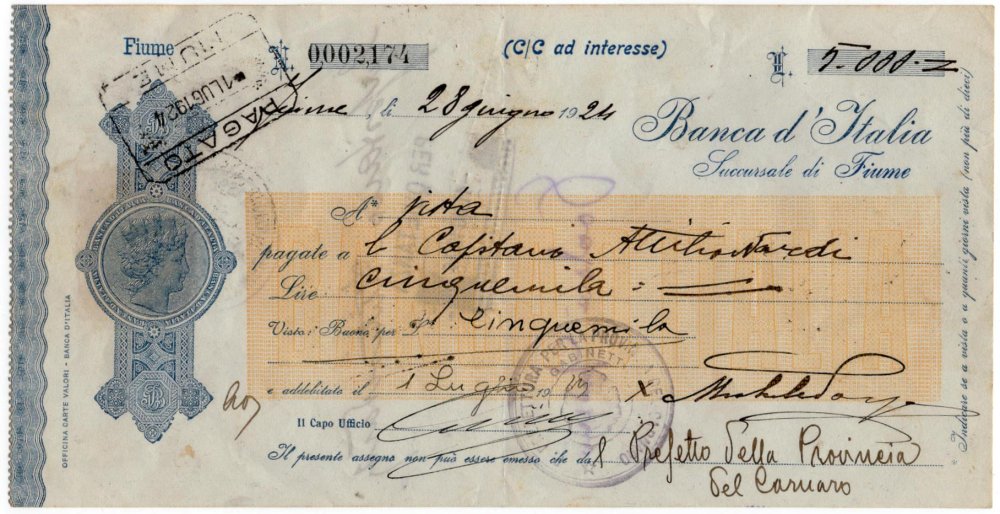 Fiume N. 0,002,174 (C/C ad interesse) L. 5.000.-
PAGATO
1 LUG 1924
FIUME
Fiume, li 28 giugno 1924
Banca d'Italia
Succursale di Fiume
A* vista
pagate a l Capitano Attilio Nardi
Lire: cinquemila =
Visto: Buono per L. Cinquemila
e addebitato il 1 Luglio 1924
Il Capo Ufficio
Il presente assegno non può essere emesso che da
Il Prefetto della Provincia
del Carnaro
* Indicare se a vista o a quanti giorni vista (non più di dieci)
OFFICINA CARTE VALORI - BANCA D'ITALIA
PER LA PROV
GABINETTO